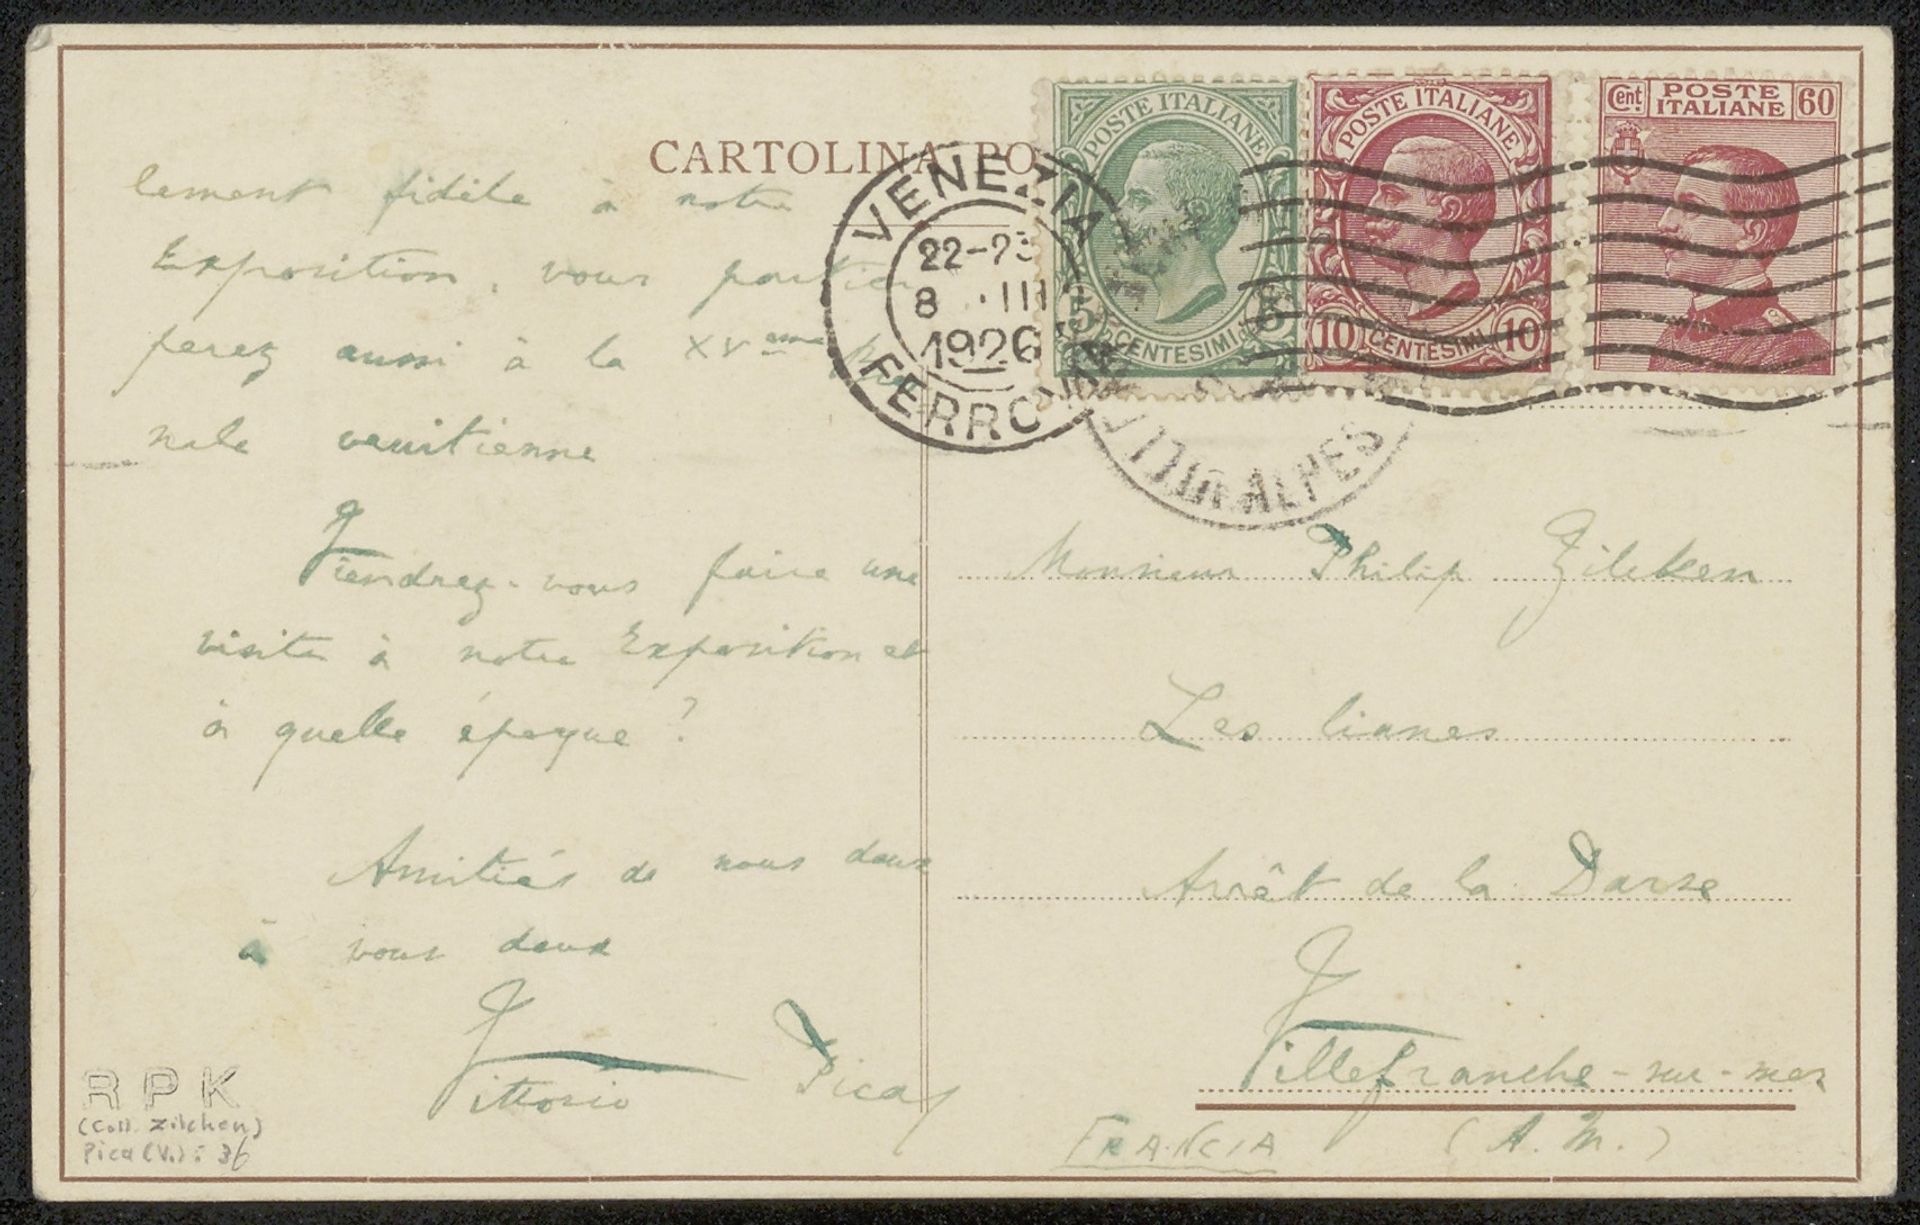 CARTOLINA PO
lement fidèle à notre
Exposition, vous partici
perez aussi à la XVeme
nale venitienne
Viendrez-vous faire une
visite à notre Exposition et
à quelle époque?
Amitiés de nous deux
à vous deux
Vittorio Pica
RPK
(Coll. Zilcken)
Pica (V.): 36
VENEZIA
22-23
8 III
1926
FERROVIA
POSTE ITALIANE
5 CENTESIMI 5
POSTE ITALIANE
10 CENTESIMI 10
Cent. POSTE ITALIANE 60
ALPES
Monsieur Philip Zilcken
Les lianes
Arrêt de la Darse
Villefranche-sur-mer
FRANCIA (A. M.)